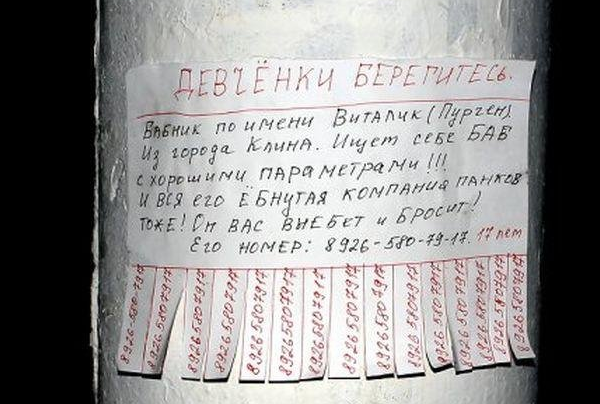 ДЕВЧЁНКИ БЕРЕГИТЕСЬ.
БАБНИК ПО ИМЕНИ ВИТАЛИК (ПУРГЕН)
ИЗ ГОРОДА КЛИНА. ИЩЕТ СЕБЕ БАБ
С ХОРОШИМИ ПАРАМЕТРАМИ!!!
И ВСЯ ЕГО ЁБНУТАЯ КОМПАНИЯ ПАНКОВ
ТОЖЕ! ОН ВАС ВЫЕБЕТ И БРОСИТ!)
ЕГО НОМЕР: 8926-580-79-17. 17 лет
8926-580-7917
89265807917
89265807917
89265807917
89265807917
89265807917
89265807917
89265807917
89265807917
89265807917
89265807917
89265807917
89265807917
89265807917